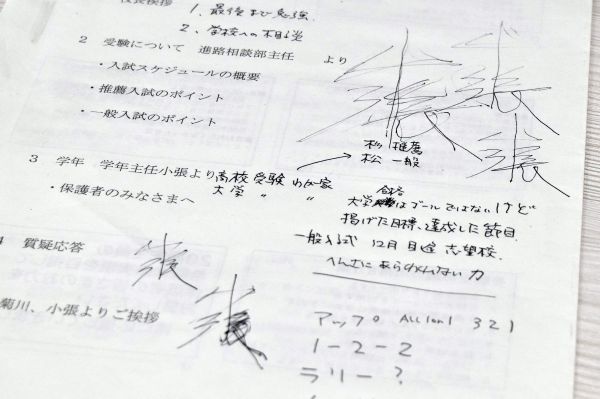 校長挨拶
1、最後まで勉強.
2、学校への相談
2 受験について 進路相談部主任 より
・入試スケジュールの概要
・推薦入試のポイント
・一般入試のポイント
小張 小張
張
杉 推薦
松 一般
3 学年 学年主任小張より 高校受験 わが家
大学 〃 〃
・保護者のみなさまへ
合格
大学はゴールではないけど
掲げた目標、達成した節目
一般入試 12月 目途 志望校
4 質疑応答
張
小張
菊川、小張よりご挨拶
アップ All (on) 321
1-2-2
ラリー?